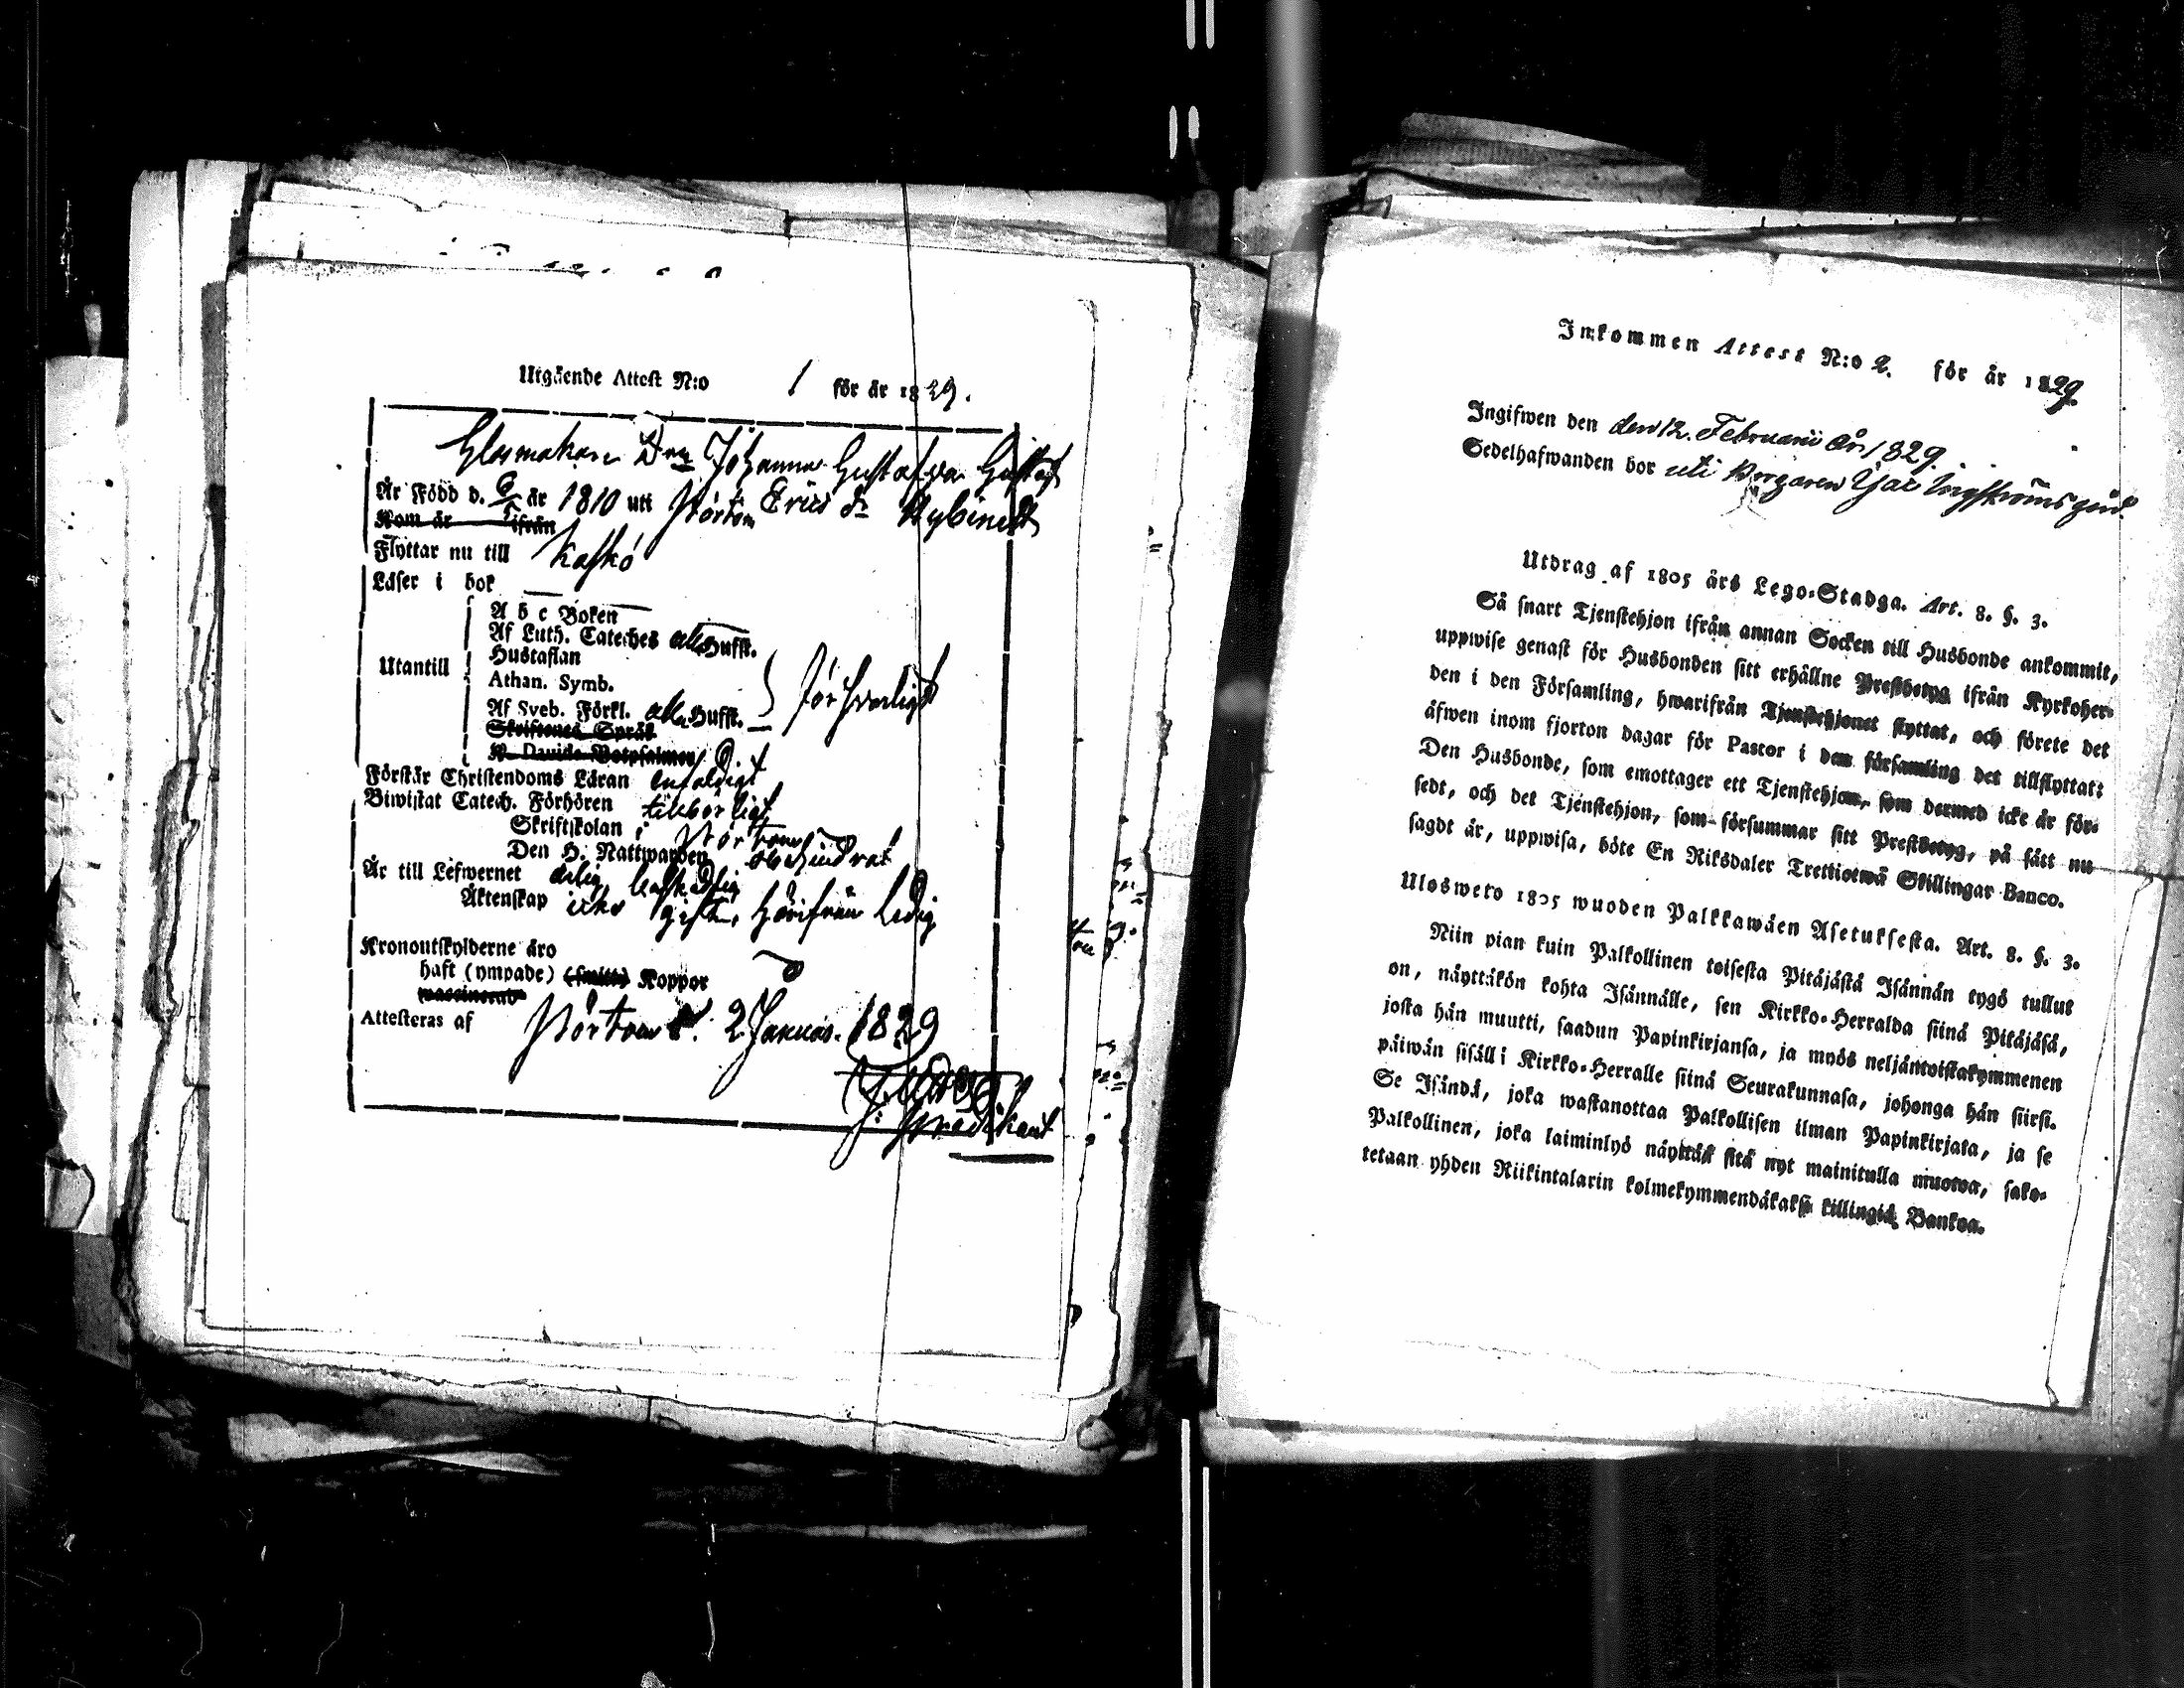 Utgående Attest N:o 1 för år 1829.
Glasmakare Johanna Gustafva
Är Född d. 6/5 år 1810 uti Pörtom Erics
Kom år ifrån
Flyttar nu till Kaskö
Läser i bok
A b c Boken
Af Luth. Cateches alla Hufst.
Hustaflan
Utantill
Athan. Symb.
Af Sveb. Förkl. alla Hufst.
försvarligt
Skriftenes Språk
K. Davids Botpsalmer
Förstår Christendoms Läran enfaldigt
Biwistat Catech. Förhören tilbörligt
Skriftskolan i Pörtom
Den H. Nattwarden obehindrat
Är till Lefwernet ärlig beskedlig
Äktenskap icke gift, härifrån ledig
Kronoutskylderne äro
haft (ympade) (smitt) Koppor
waccinerad
Attesteras af Pörtom d. 2 Januar. 1829
Predikant
Inkommen Attest N:o 2. för år 1829.
Ingifwen den den 12. Februarii År 1829.
Sedelhafwanden bor uti Borgaren Ingströms gård.
Utdrag af 1805 års Lego-Stadga. Art. 8. §. 3.
Så snart Tjenstehjon ifrån annan Socken till Husbonde ankommit,
uppwise genast för Husbonden sitt erhållne Prestbetyg ifrån Kyrkoher-
den i den Församling, hwarifrån Tjenstehjonet flyttat, och förete det
äfwen inom fjorton dagar för Pastor i den församling det tillflyttat:
Den Husbonde, som emottager ett Tjenstehjon, som dermed icke är för-
sedt, och det Tjenstehjon, som försummar sitt Prestbetyg, på sätt nu
sagdt är, uppwisa, böte En Riksdaler Trettiotwå Skillingar Banco.
Ulosweto 1805 wuoden Palkkawäen Asetuksesta. Art. 8. §. 3.
Niin pian kuin Palkollinen toisesta Pitäjästä Isännän tygö tullut
on, näyttäkön kohta Isännälle, sen Kirkko-Herralda siinä Pitäjäsä,
josta hän muutti, saadun Papinkirjansa, ja myös neljäntoistakymmenen
päiwän sisälli Kirkko-Herralle siinä Seurakunnasa, johonga hän siirsi.
Se Isändä, joka wastanottaa Palkollisen ilman Papinkirjata, ja se
Palkollinen, joka laiminlyö näyttää sitä nyt mainitulla muotoa, sako-
tetaan yhden Riikintalarin kolmekymmendäkaksi killingiä Bankoa.